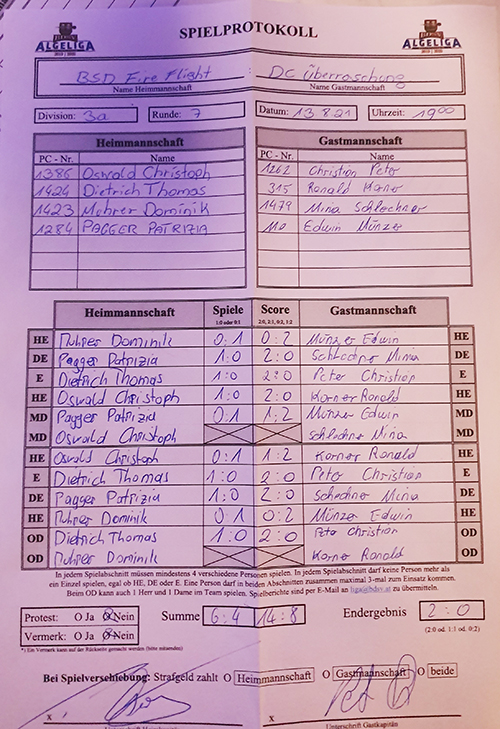 ALGELIGA
SPIELPROTOKOLL
ALGELIGA
BSD Fire Flight : DC Überraschung
Name Heimmannschaft Name Gastmannschaft
Division: 3a Runde: 7 Datum: 13.8.21 Uhrzeit: 19:00
Heimmannschaft Gastmannschaft
PC - Nr. Name PC - Nr. Name
1386 Oswald Christoph 1262 Christian Peter
1424 Dietrich Thomas 315 Ronald
1423 Muhrer Dominik 1479 Mina Schlechner
1284 PAGGER PATRIZIA 110 Edwin Münzer
Heimmannschaft Spiele Score Gastmannschaft
1:0 oder 0:1 2:0, 2:1, 0:2, 1:2
HE Muhrer Dominik 0:1 0:2 Münzer Edwin HE
DE Pagger Patrizia 1:0 2:0 Schlechner Mina DE
E Dietrich Thomas 1:0 2:0 Peter Christian E
HE Oswald Christoph 1:0 2:0 Korner Ronald HE
MD Pagger Patrizia 0:1 1:2 Münzer Edwin MD
MD Oswald Christoph Schlechner Mina MD
HE Oswald Christoph 0:1 1:2 Korner Ronald HE
E Dietrich Thomas 1:0 2:0 Peter Christian E
DE Pagger Patrizia 1:0 2:0 Schlechner Mina DE
HE Muhrer Dominik 0:1 0:2 Münzer Edwin HE
OD Dietrich Thomas 1:0 2:0 Peter Christian OD
OD Muhrer Dominik Korner Ronald OD
In jedem Spielabschnitt müssen mindestens 4 verschiedene Personen spielen. In jedem Spielabschnitt darf keine Person mehr als
ein Einzel spielen, egal ob HE, DE oder E. Eine Person darf in beiden Abschnitten zusammen maximal 3-mal zum Einsatz kommen.
Beim OD kann auch 1 Herr und 1 Dame im Team spielen. Spielberichte sind per E-Mail an zu übermitteln.
Protest: O Ja O Nein Summe 6:4 14:8 Endergebnis 2:0
Vermerk: O Ja O Nein (2:0 od. 1:1 od. 0:2)
*) Ein Vermerk kann auf der Rückseite gemacht werden (bitte mitsenden)
Bei Spielverschiebung: Strafgeld zahlt O Heimmannschaft O Gastmannschaft O beide
x x
Unterschrift Gastkapitän